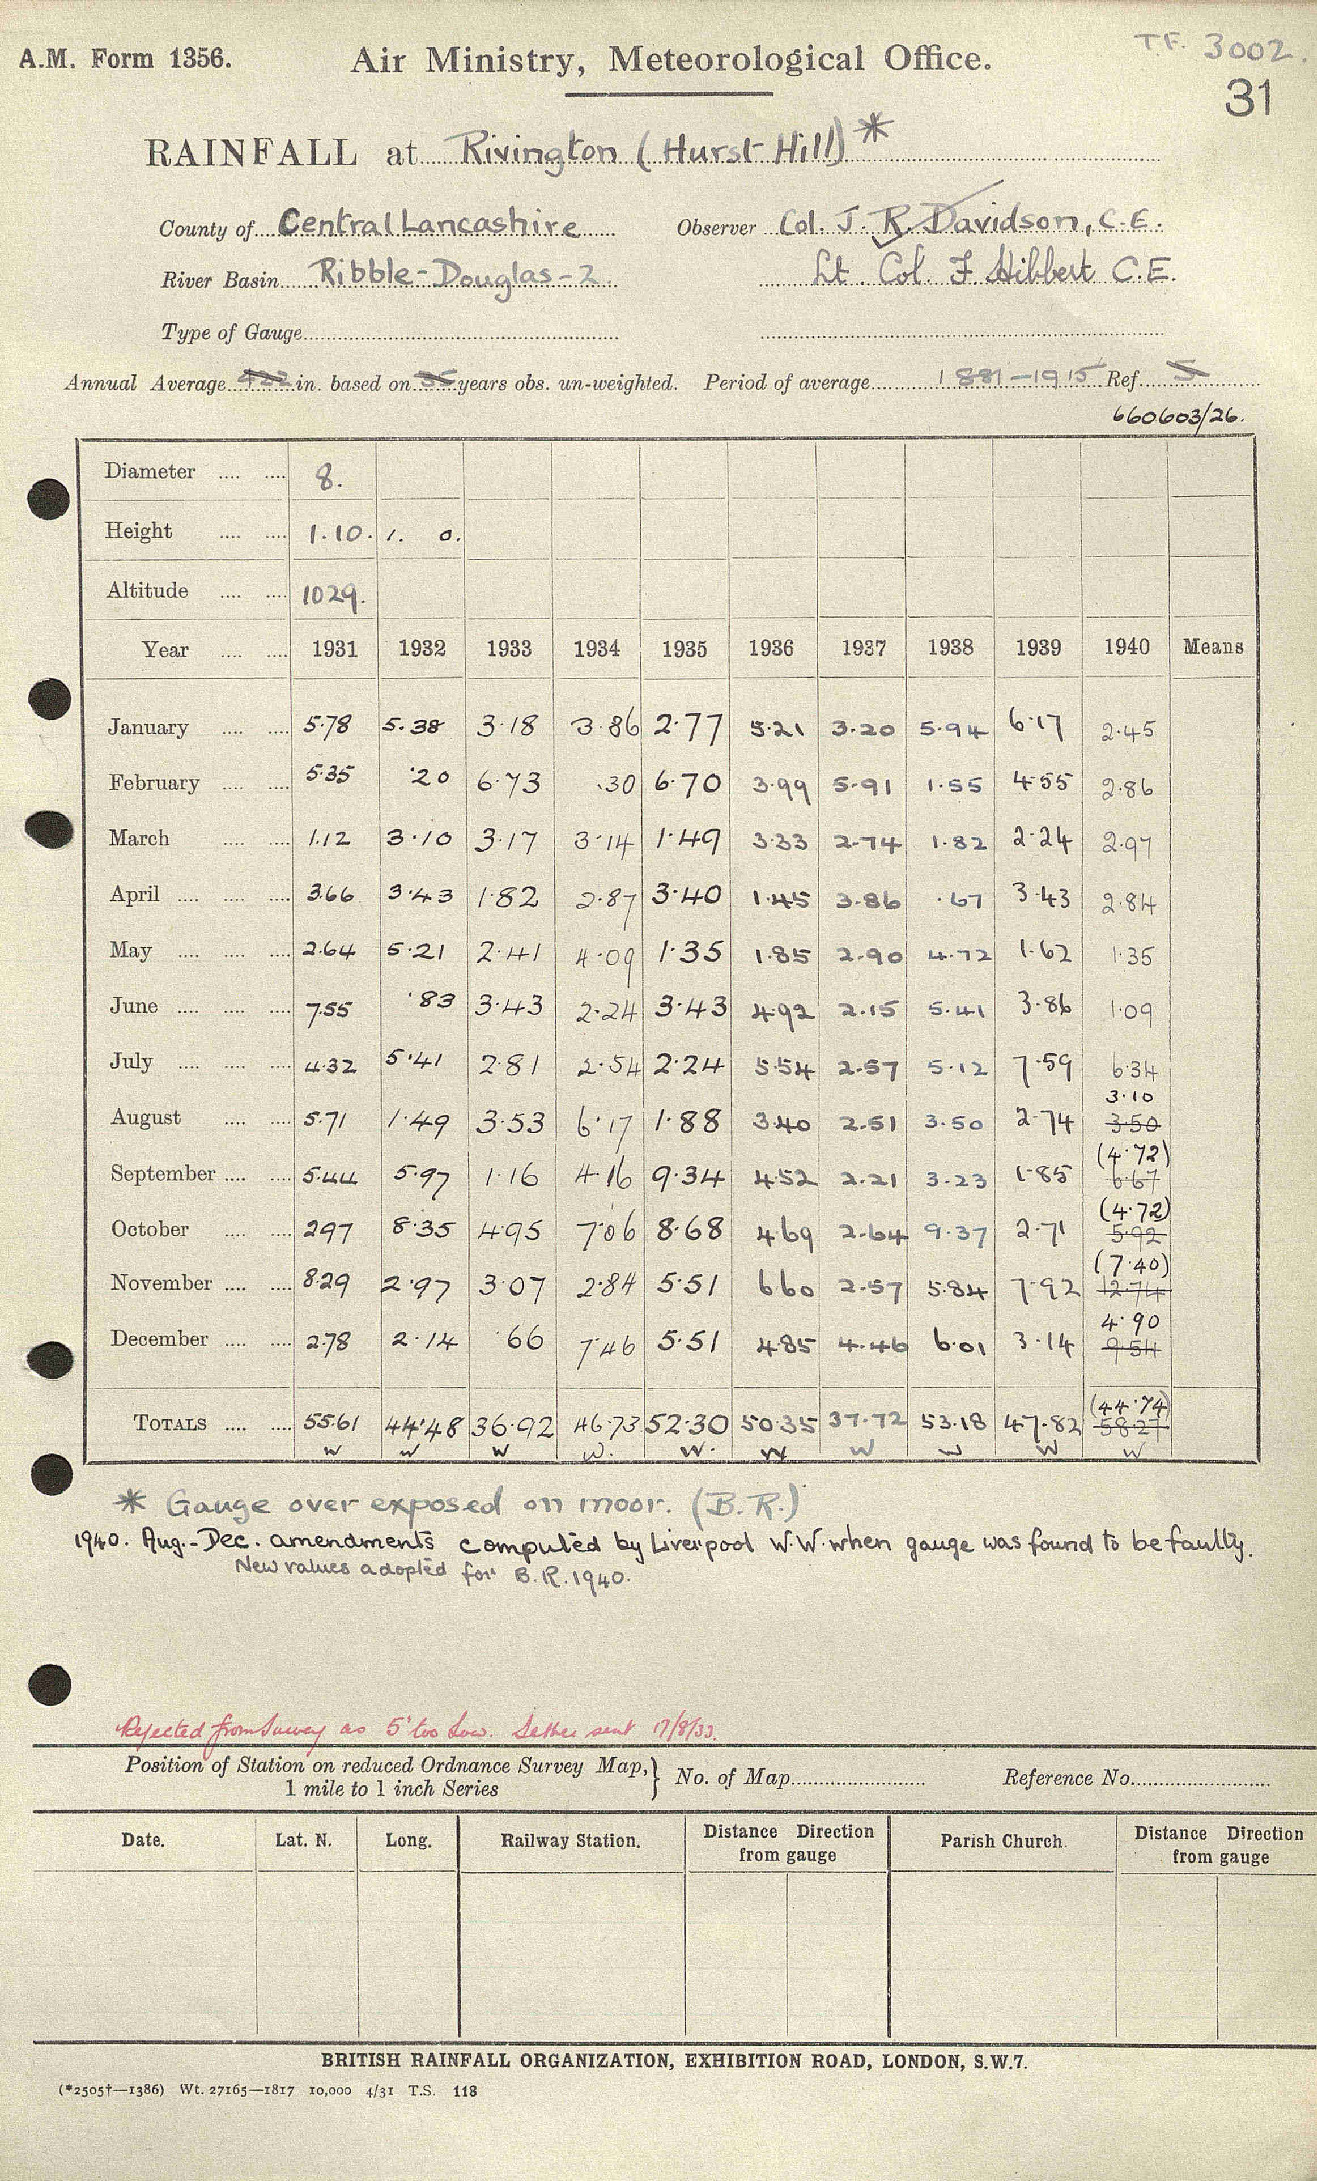 A.M. Form 1356. Air Ministry, Meteorological Office. T.F. 3002.
31
RAINFALL at Rivington (Hurst Hill)*
County of Central Lancashire Observer Col. J. R. Davidson, C.E.
River Basin Ribble-Douglas-2. Lt. Col. F. Hibbert C.E.
Type of Gauge
Annual Average 422 in. based on 35 years obs. un-weighted. Period of average 1881-1915 Ref. S
660603/26.
Diameter 8.
Height 1.10. 1. 0.
Altitude 1029.
Year 1931 1932 1933 1934 1935 1936 1937 1938 1939 1940 Means
January 5.78 5.38 3.18 3.86 2.77 5.21 3.20 5.94 6.17 2.45
February 5.35 .20 6.73 .30 6.70 3.99 5.91 1.55 4.55 2.86
March 1.12 3.10 3.17 3.14 1.49 3.33 2.74 1.82 2.24 2.97
April 3.66 3.43 1.82 2.87 3.40 1.45 3.86 .67 3.43 2.84
May 2.64 5.21 2.41 4.09 1.35 1.85 2.90 4.72 1.62 1.35
June 7.55 .83 3.43 2.24 3.43 4.92 2.15 5.41 3.86 1.09
July 4.32 5.41 2.81 2.54 2.24 5.54 2.57 5.12 7.59 6.34
3.10
August 5.71 1.49 3.53 6.17 1.88 3.40 2.51 3.50 2.74 3.50
(4.72)
September 5.44 5.97 1.16 4.16 9.34 4.52 2.21 3.23 1.85 6.67
(4.72)
October 2.97 8.35 4.95 7.06 8.68 4.69 2.64 9.37 2.71 5.92
(7.40)
November 8.29 2.97 3.07 2.84 5.51 6.60 2.57 5.84 7.92 12.74
4.90
December 2.78 2.14 .66 7.46 5.51 4.85 4.46 6.01 3.14 9.54
(44.74)
TOTALS 55.61 44.48 36.92 46.73 52.30 50.35 37.72 53.18 47.82 58.27
w w w w. w. w w w w w
* Gauge over exposed on moor. (B.R.)
1940. Aug.-Dec. amendments computed by Liverpool W.W. when gauge was found to be faulty.
New values adopted for B.R. 1940.
Rejected from Survey as 5" too low. Letter sent 17/8/33.
Position of Station on reduced Ordnance Survey Map, } No. of Map Reference No.
1 mile to 1 inch Series
Date. Lat. N. Long. Railway Station. Distance Direction from gauge Parish Church. Distance Direction from gauge
BRITISH RAINFALL ORGANIZATION, EXHIBITION ROAD, LONDON, S.W.7.
(*2505†—1386) Wt. 27165—1817 10,000 4/31 T.S. 118